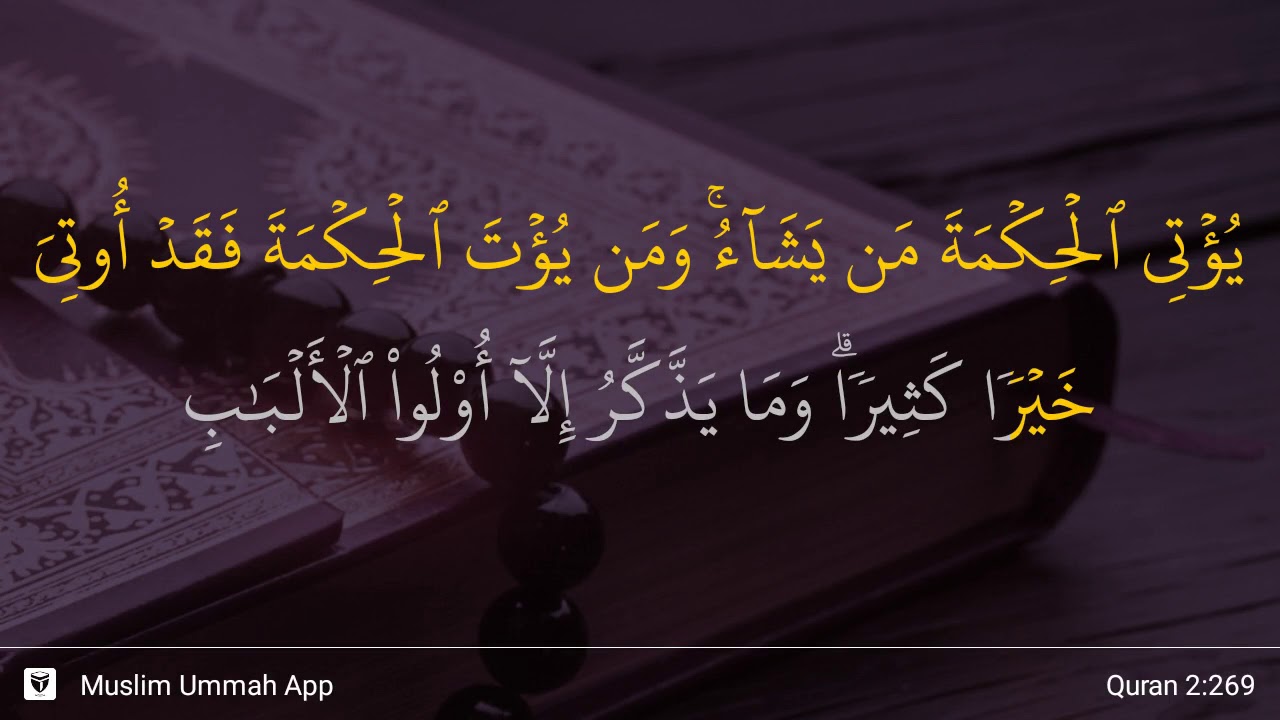 يُؤْتِى ٱلْحِكْمَةَ مَن يَشَآءُ ۚ وَمَن يُؤْتَ ٱلْحِكْمَةَ فَقَدْ أُوتِىَ
خَيْرًا كَثِيرًا ۗ وَمَا يَذَّكَّرُ إِلَّآ أُو۟لُوا۟ ٱلْأَلْبَـٰبِ
Muslim Ummah App
Quran 2:269